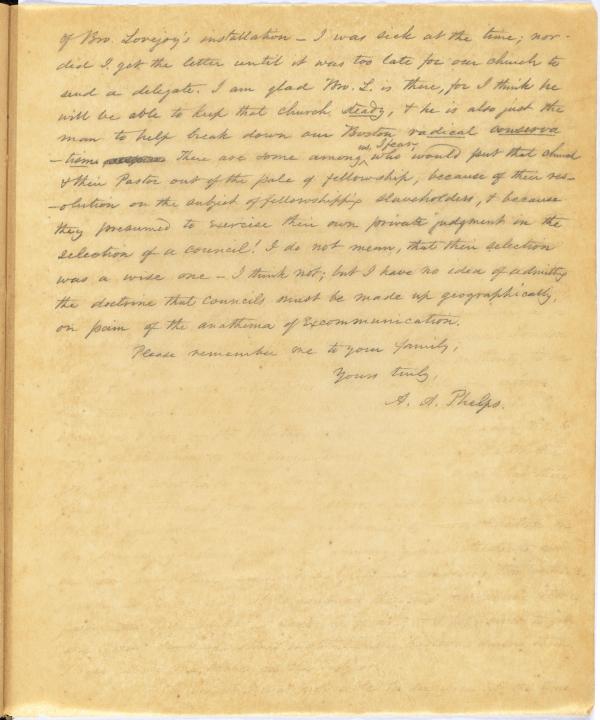 of Bro. Lovejoy's installation – I was sick at the time; nor
did I get the letter until it was too late for our church to
send a delegate. I am glad Bro. L. is there, for I think he
will be able to keep that church steady, & he is also just the
man to help break down our Boston radical conserva
-tism. There are some among us, I fear, who would put that church
& their Pastor out of the pale of fellowship, because of their res-
-olution on the subject of fellowshipp'g slaveholders, & because
they presumed to exercise their own private judgment in the
selection of a council! I do not mean, that their selection
was a wise one – I think not; but I have no idea of admitt'g
the doctrine that councils must be made up geographically,
on pain of the anathema of Excommunication.
Please remember me to your family,
Yours truly,
A. A. Phelps.